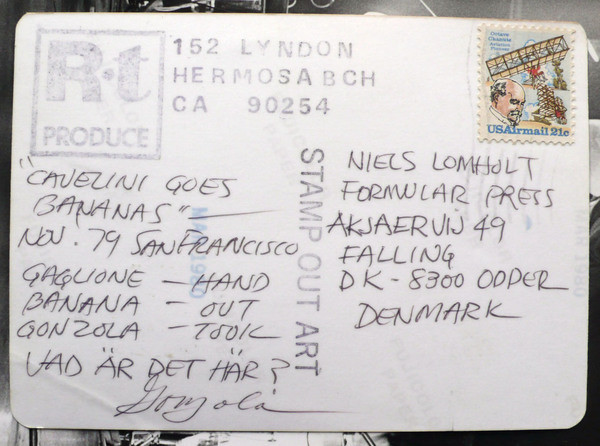 R.t
PRODUCE
152 LYNDON
HERMOSA BCH
CA 90254
Octave
Chanute
Aviation
Pioneer
USAirmail 21c
"CAVELINI GOES
BANANAS"
NOV. 79 SAN FRANCISCO
GAGLIONE - HAND
BANANA - OUT
GONZOLA - TOOK
VAD ÄR DET HÄR?
Gonzola
STAMP OUT ART
NIELS LOMHOLT
FORMULAR PRESS
AKJAERVIJ 49
FALLING
DK - 8300 ODDER
DENMARK
MAR 1980
MAR 1980